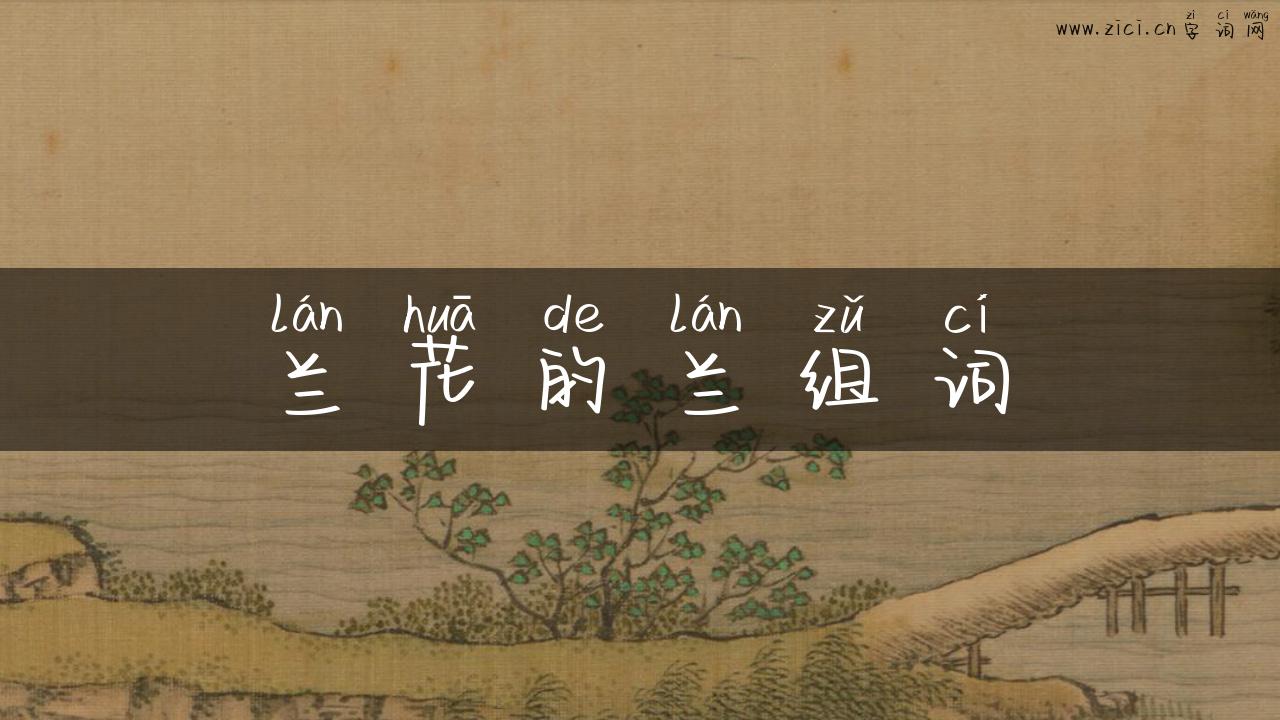 zì cí wǎng
www.zici.cn 字词网
lán huā de lán zǔ cí
兰花的兰组词